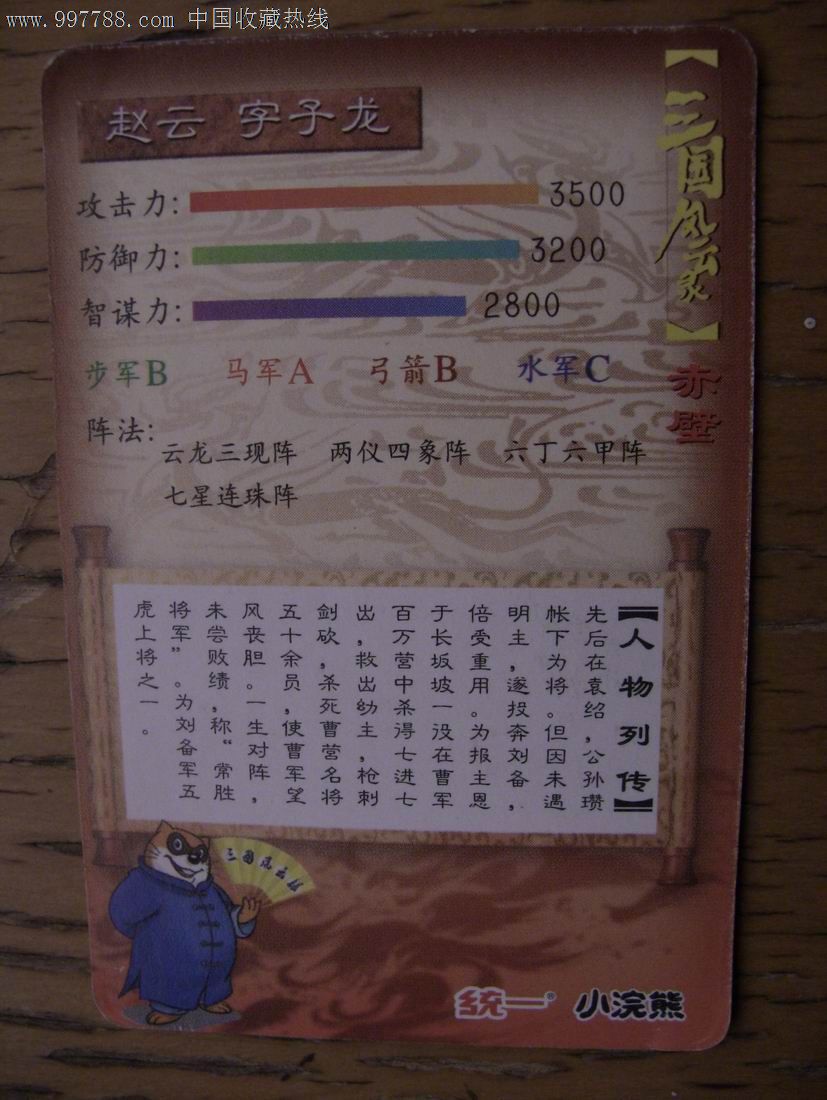 www.997788.com 中国收藏热线
赵云 字子龙
【三国风云炙】
赤壁
攻击力: 3500
防御力: 3200
智谋力: 2800
步军B 马军A 弓箭B 水军C
阵法:
云龙三现阵 两仪四象阵 六丁六甲阵
七星连珠阵
【人物列传】
先后在袁绍,公孙瓒
帐下为将。但因未遇
明主,遂投奔刘备,
倍受重用。为报主恩
于长坂坡一役在曹军
百万营中杀得七进七
出,救出幼主,枪刺
剑砍,杀死曹营名将
五十余员,使曹军望
风丧胆。一生对阵,
未尝败绩,称“常胜
将军”。为刘备军五
虎上将之一。
三国风云
统一® 小浣熊